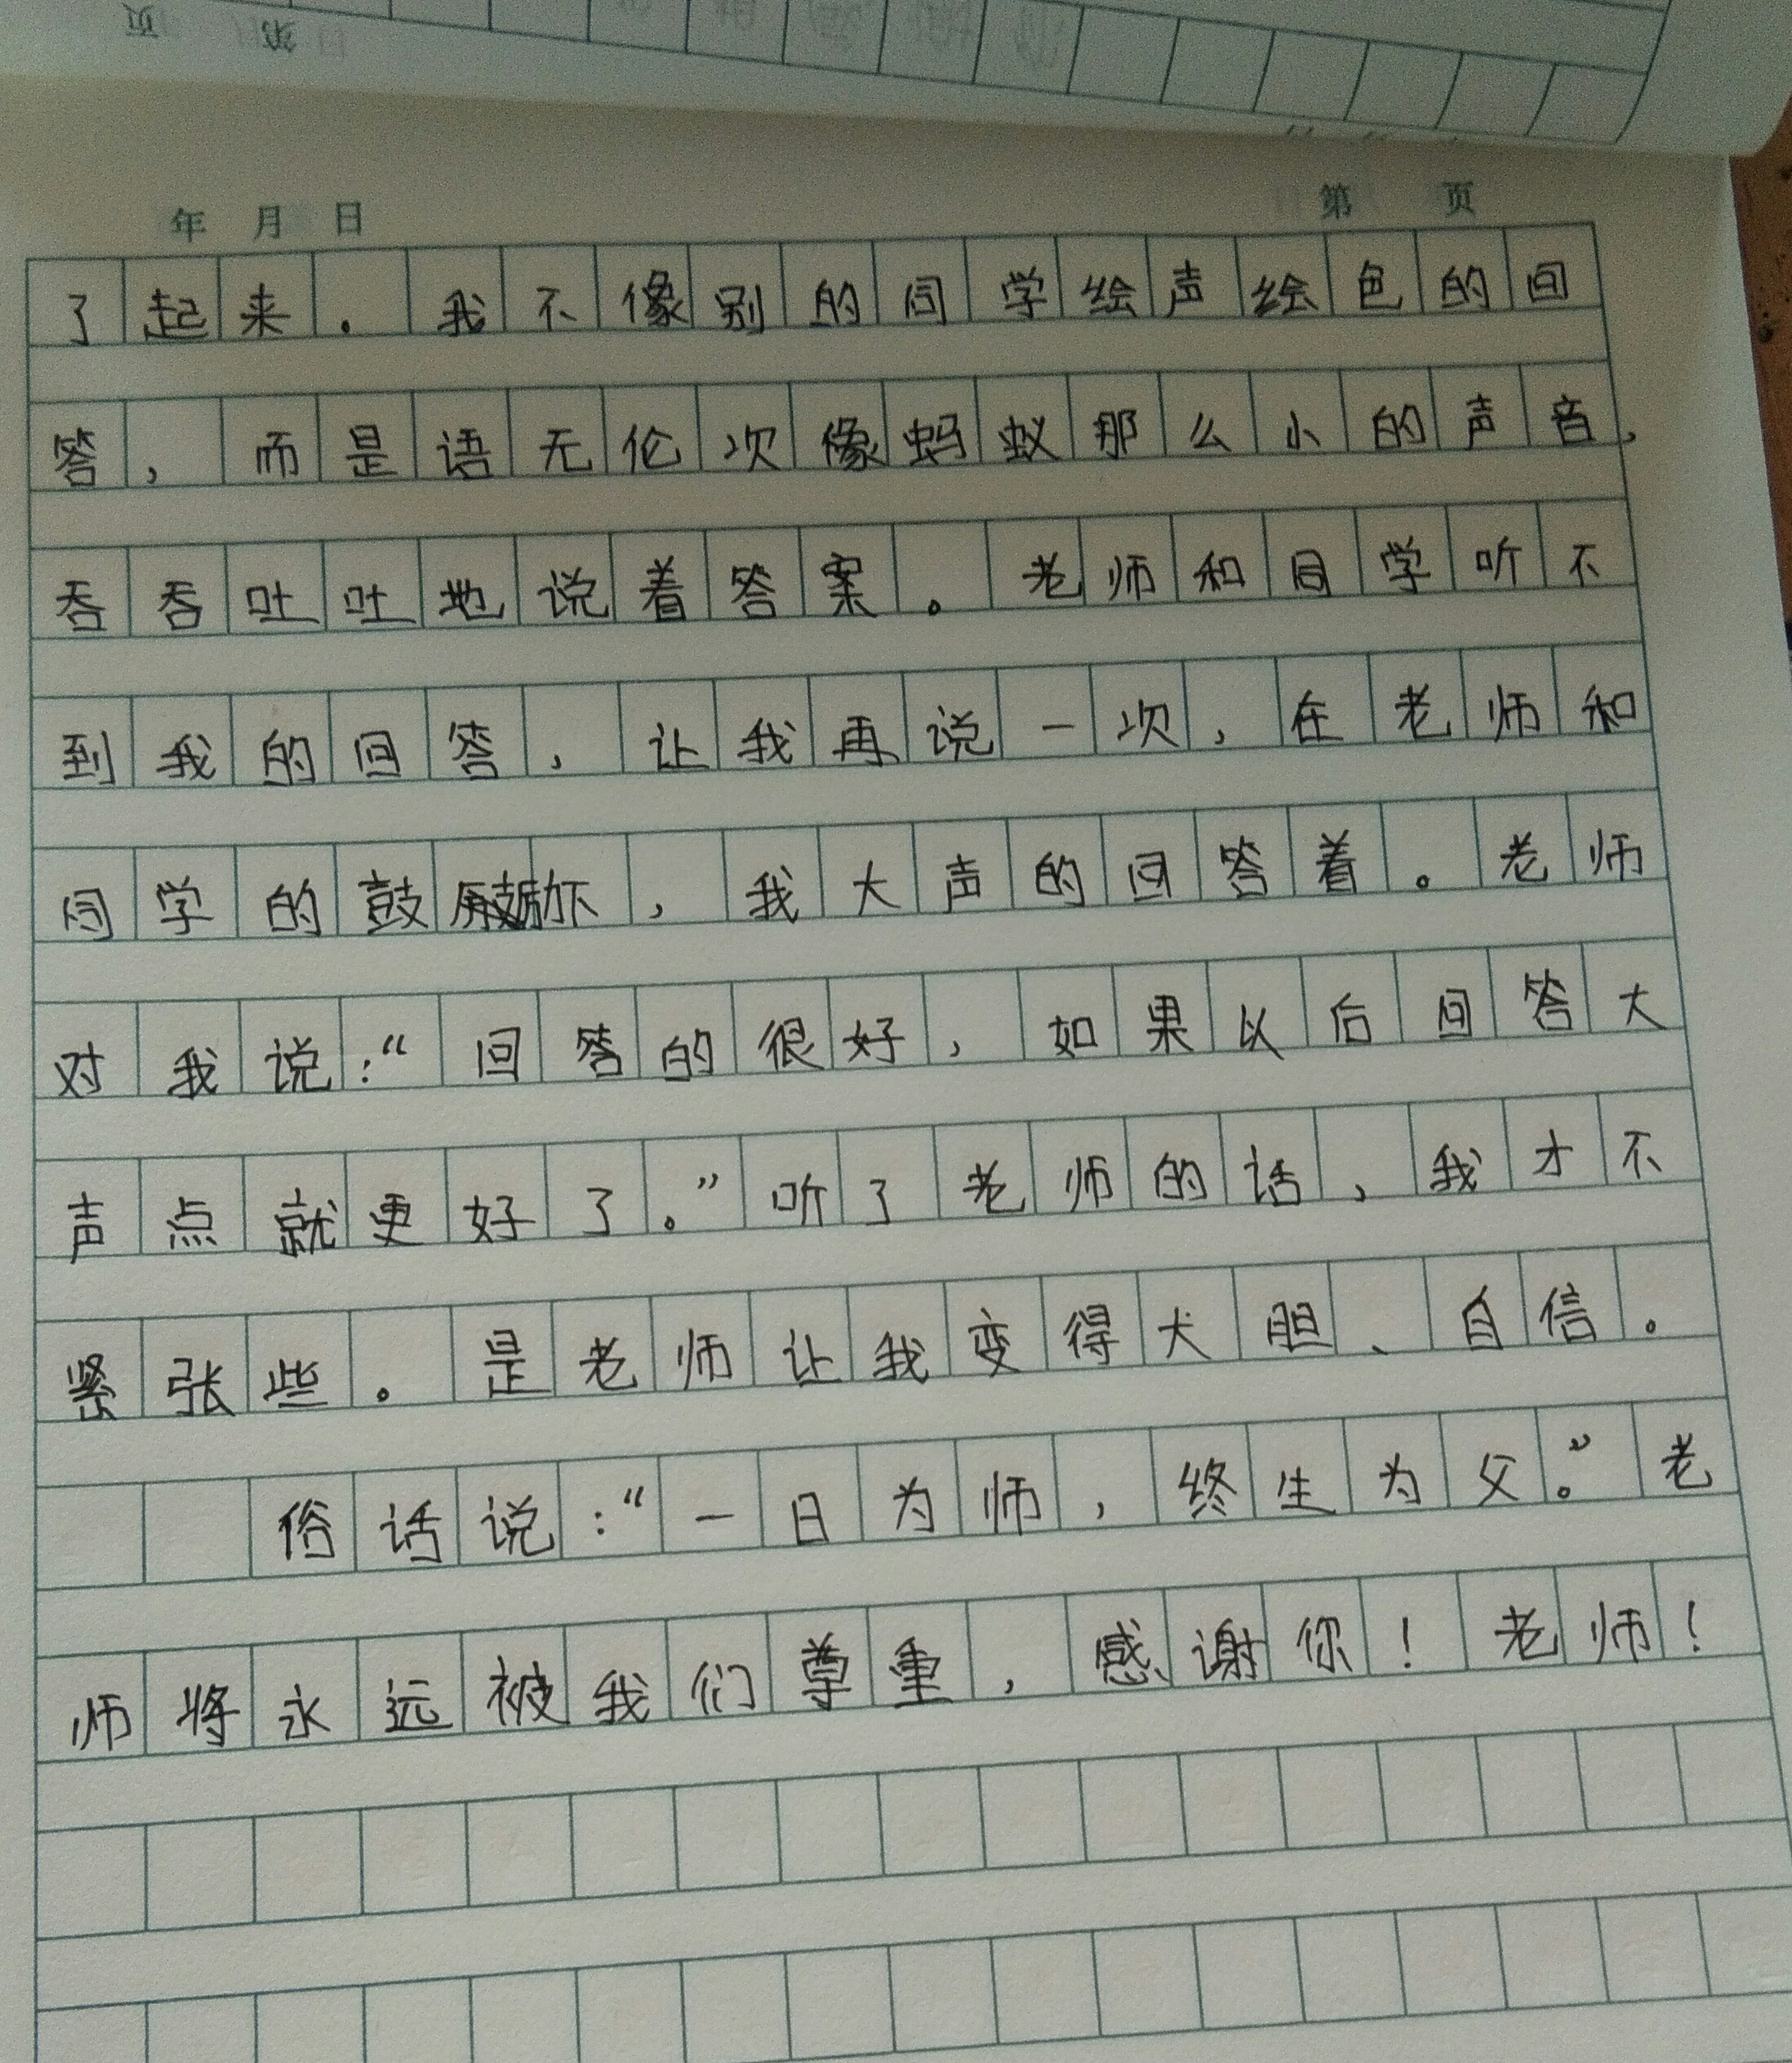 页 第
年 月 日 第 页
了起来。我不像别的同学绘声绘色的回
答，而是语无伦次像蚂蚁那么小的声音，
吞吞吐吐地说着答案。老师和同学听不
到我的回答，让我再说一次，在老师和
同学的鼓励下，我大声的回答着。老师
对我说：“回答的很好，如果以后回答大
声点就更好了。”听了老师的话，我才不
紧张些。是老师让我变得大胆、自信。
俗话说：“一日为师，终生为父。”老
师将永远被我们尊重，感谢你！老师！